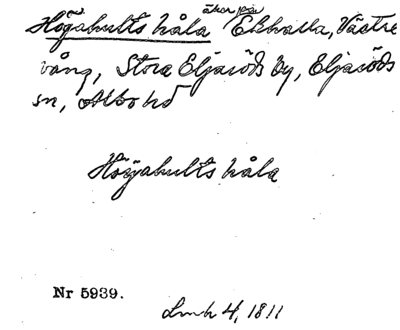 Högahults håla åker på Ekhalla, Västre
vång, Stora Eljaröds by, Eljaröds
sn, Albo hd
Höijahults håla
Nr 5939.
Lmh 4, 1811